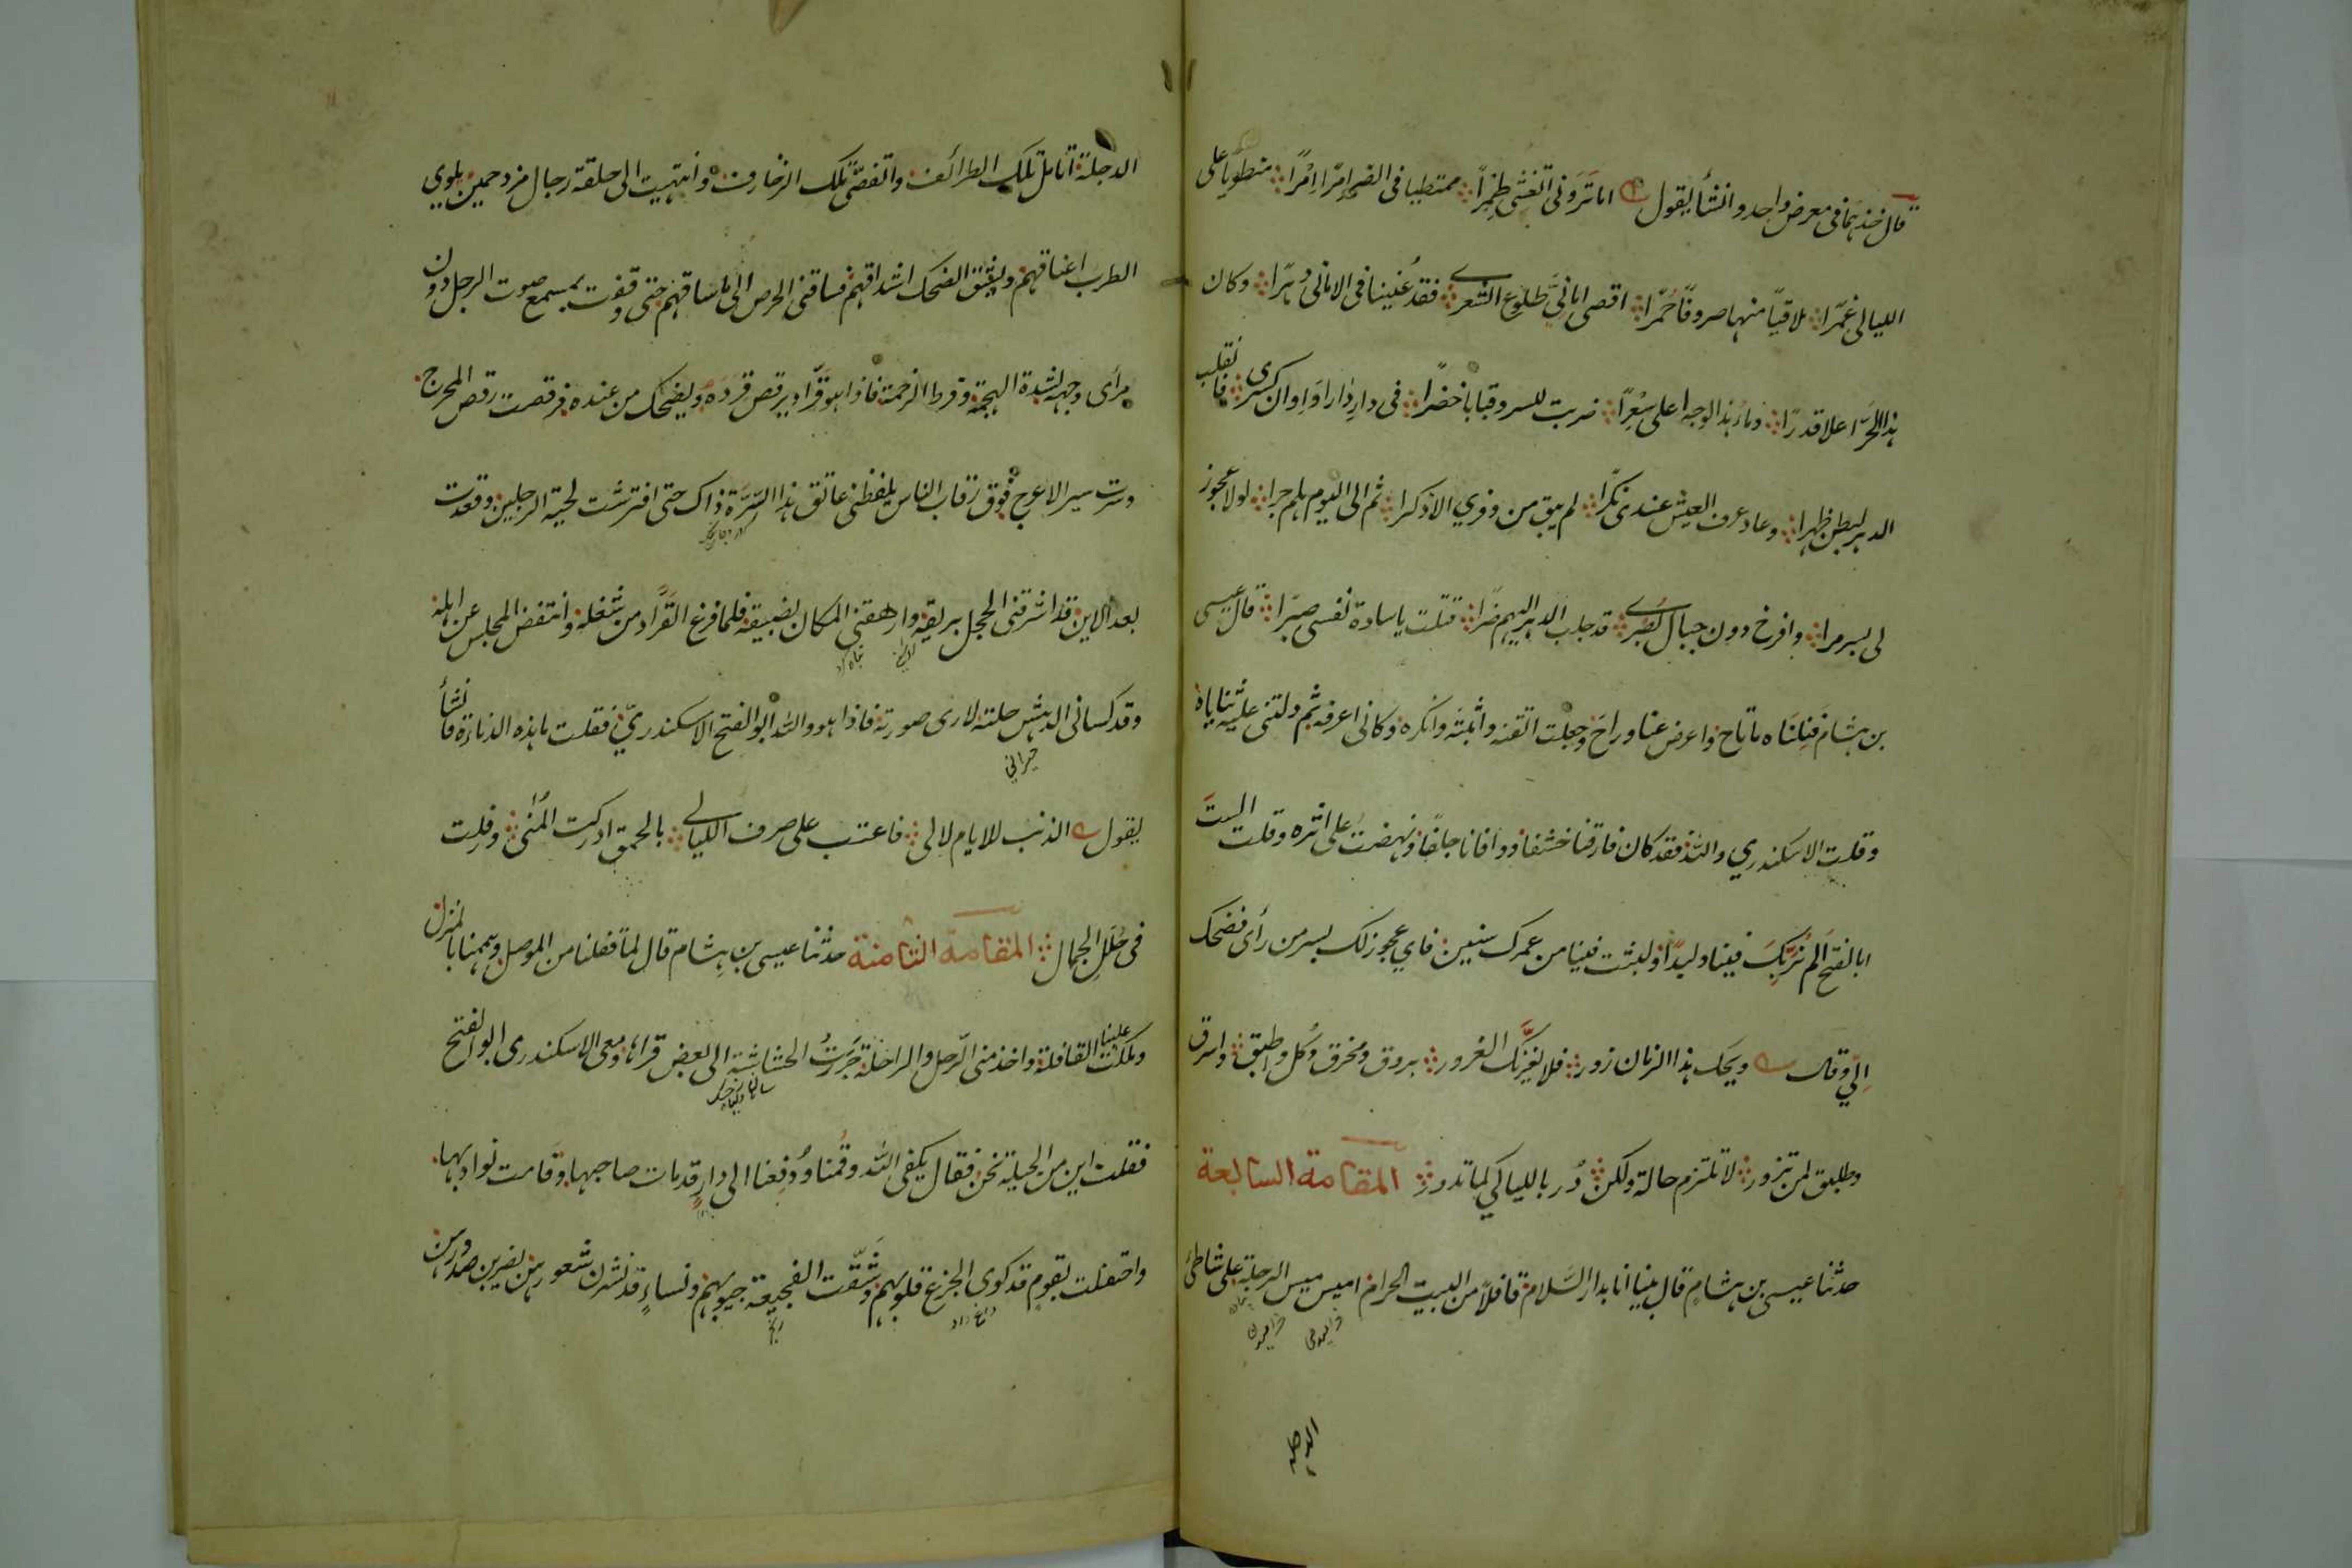 قال خذهما في معرض واحد وانشأ يقول اما تروني اتغشى طمرا ممتطيا في الضر امرا امرا منطويا على
الليالي غمرا ملاقيا منها صروفا حمرا اقصى اماني طلوع الشعرى فقد عنينا في الاماني دهرا وكان
هذا الحر اعلا قدرا وماء هذا الوجه اعلى سعرا ضربت للسر وقبابا خضرا في دار دارا واوان كسرى فانقلب
الدهر لبطن ظهرا وعاد عرف العيش عندي نكرا لم يبق من وفري الا ذكرا ثم الى اليوم هلم جرا لولا عجوز
لي بسر مرا وافرخ دون جبال بصرى قد جلب الدهر اليهم ضرا قتلت يا سادة نفسي صبرا قال عيسى
بن هشام فنلناه ما تاح واعرض عنا وراح وجعلت اتقنه واثبته وانكره وكاني اعرفه ثم دلتني عليه ثناياه
وقلت الاسكندري والله فقد كان فارقنا خشفا ووافانا جلفا ونهضت على اثره وقلت الست
ابا الفتح الم نربك فينا وليدا ولبثت فينا من عمرك سنين فاي عجوز لك بسر من رأى فضحك
الي وقال ويحك هذا الزمان زور فلا يغرنك الغرور بروق ومخرق وكل واطبق واسرق
وطلبق لمن تزور لا تلتزم حالة ولكن در بالليالي كما تدور المقامة السابعة
حدثنا عيسى بن هشام قال بينا انا بدار السلام قافلا من البيت الحرام اميس ميس الرجلة على شاطئ
الدجلة
الدجلة اتامل تلك الطرائف واتقصى تلك الزخارف وانتهيت الى حلقة رجال مزدحمين يلوي
الطرب اعناقهم ويشق الضحك اشداقهم فساقني الحرص الى ما ساقهم حتى وقفت بمسمع صوت الرجل دون
مرأى وجهه لشدة الهجمة وفرط الزحمة فاذا هو قراد يرقص قرده ويضحك من عنده فرقصت رقص المحرج
وسرت سير الاعرج فوق رقاب الناس يلفظني عاتق هذا السرة ذاك حتى افترشت لحية الرجلين وقعدت
بعد الاين قد اشرقني الخجل بريقه وارهقني المكان بضيقه فلما فرغ القراد من شغله وانتفض المجلس عن اهله
وقد كساني الدهش حلته لارى صورته فاذا هو والله ابو الفتح الاسكندري فقلت ما هذه الدناءة فانشأ
حيراني
يقول الذنب للايام لا لي فاعتب على صرف الليالي بالحمق ادركت المنى وفلت
في حلل الجمال المقامة الثامنة حدثنا عيسى بن هشام قال لما قفلنا من الموصل وهممنا بالمنزل
وملكت علينا القافلة واخذ مني الرحل والراحلة جرت الحشاشة الى بعض قراها ومعي الاسكندري ابو الفتح
فقلت اين من الحيلة نحن فقال يكفي الله وقمنا ودفعنا الى دار قد مات صاحبها وقامت نوادبها
واحتفلت بقوم قد كوى الجزع قلوبهم وشقت الفجيعة جيوبهم ونساء قد نشرن شعورهن يضربن صدورهن
داغ داد